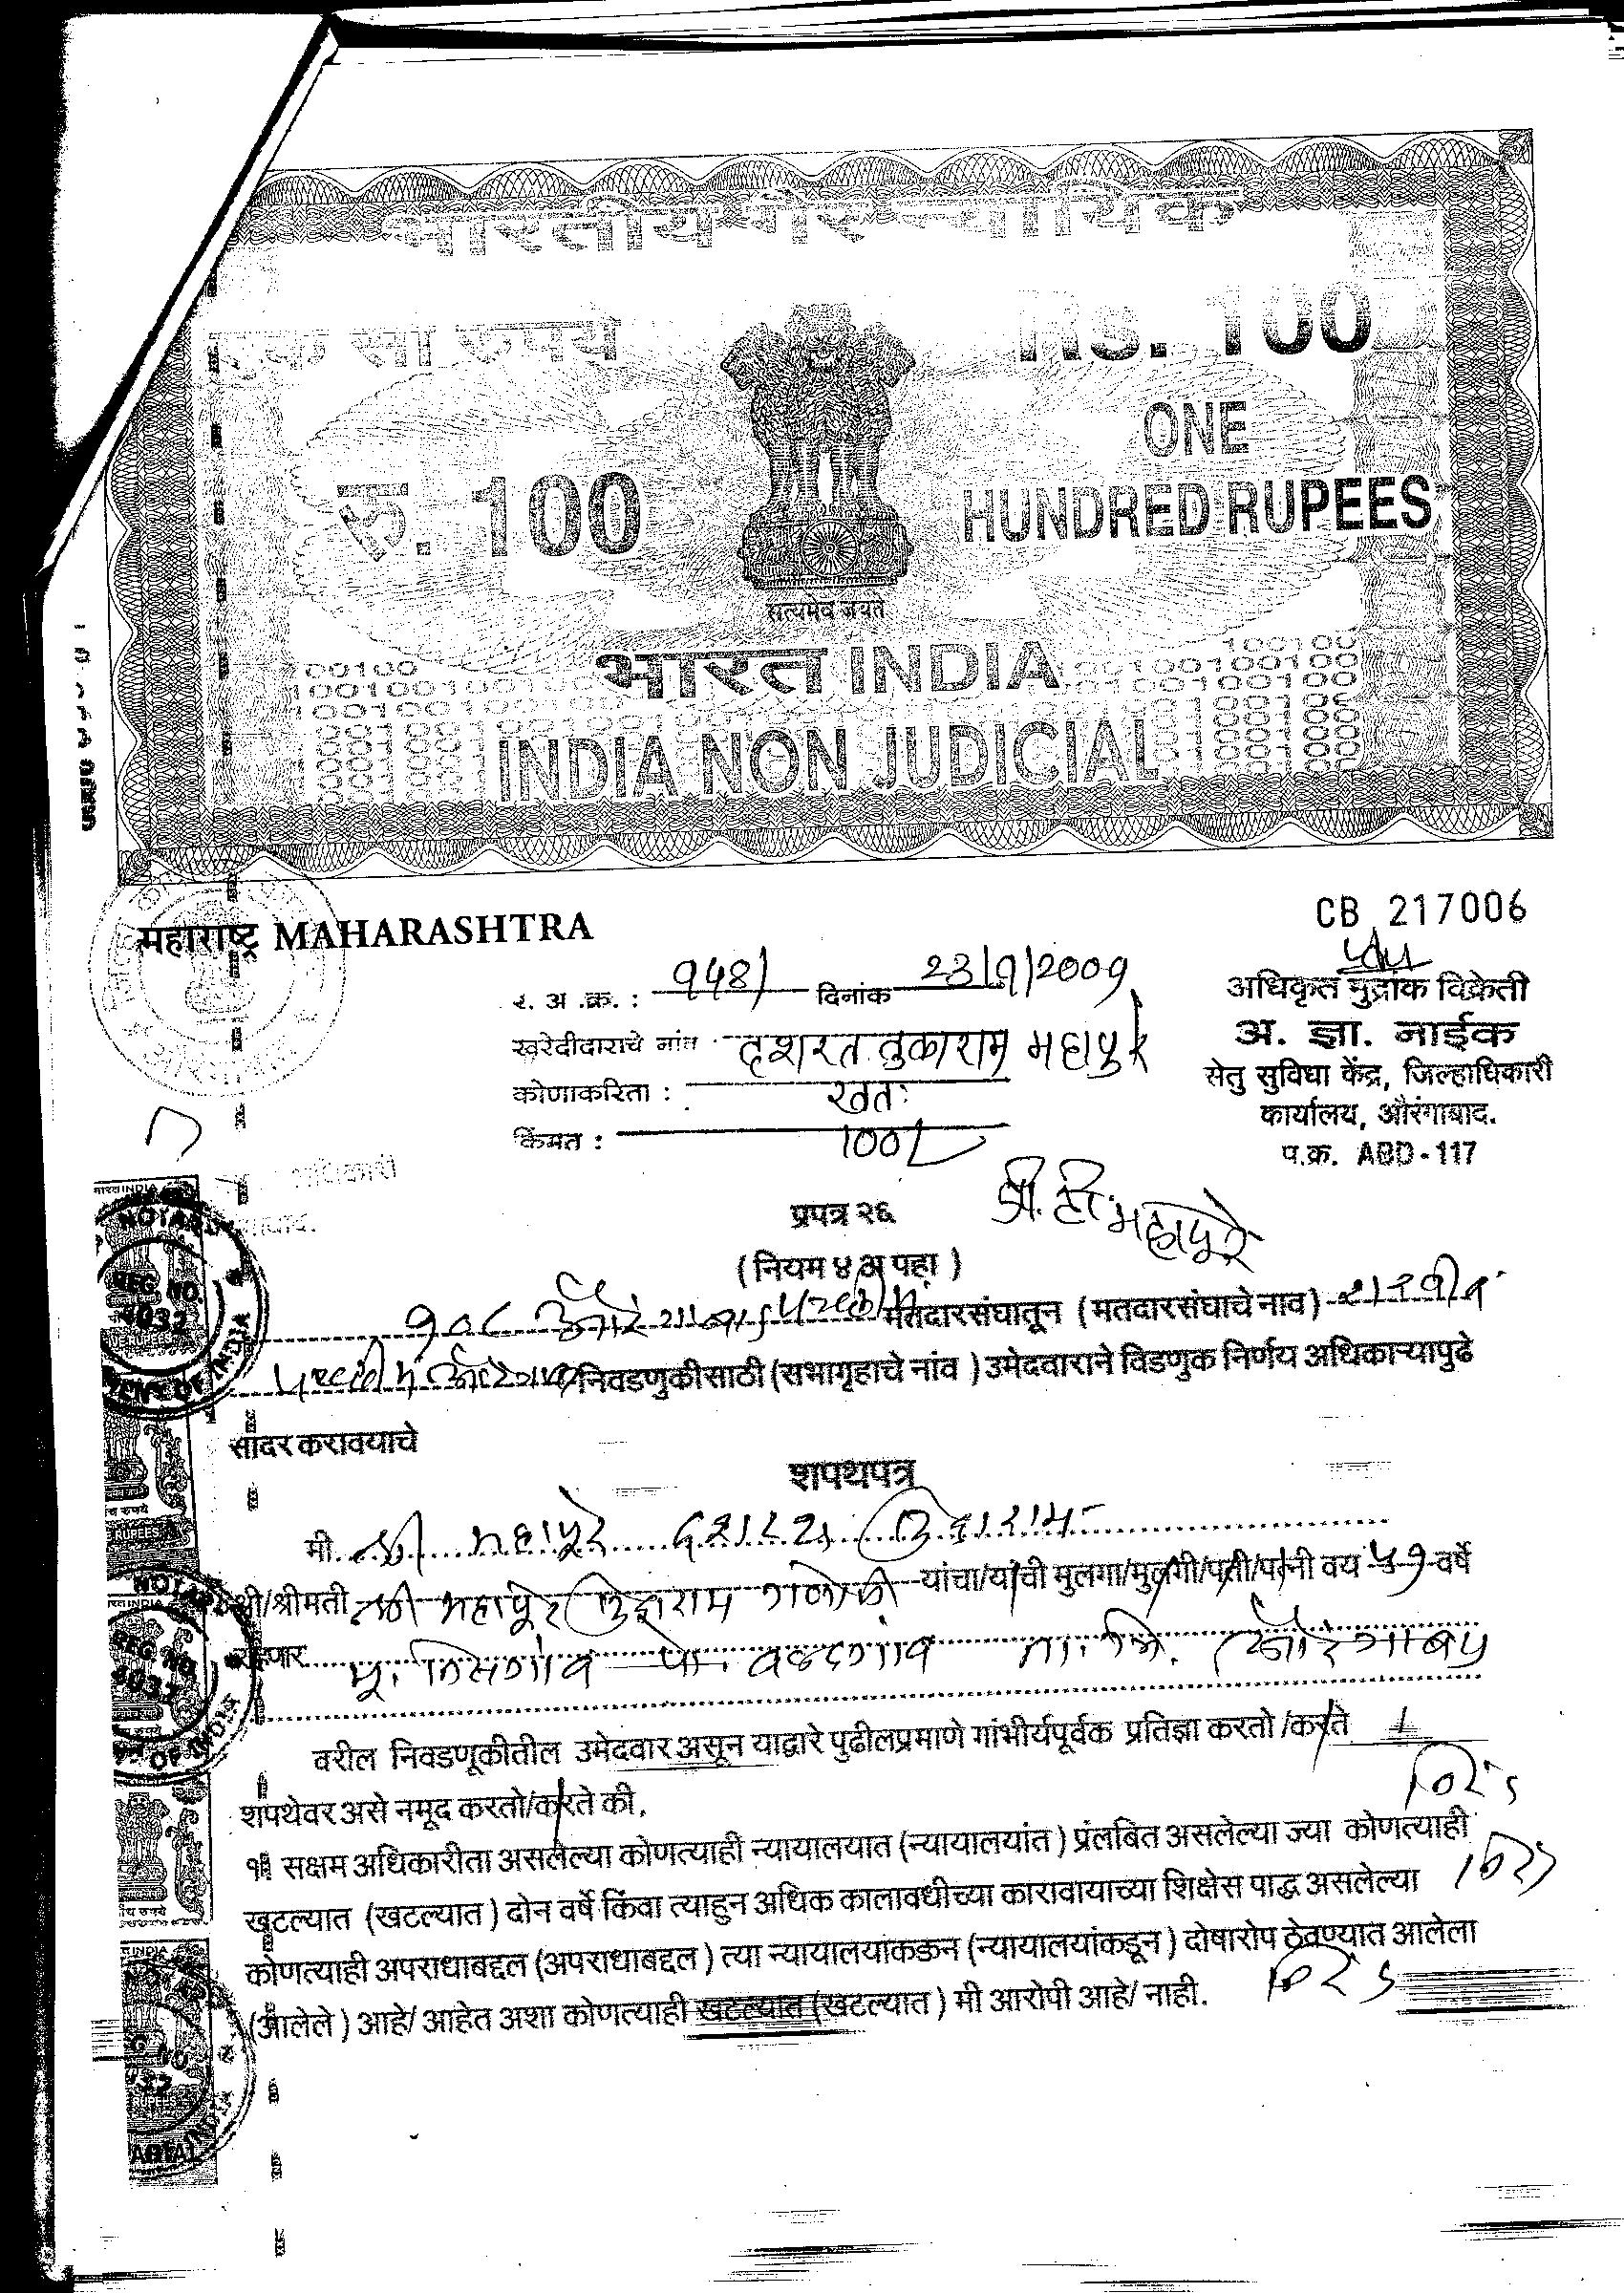 भारतीय गैर न्यायिक
एक सौ रुपये
Rs. 100
रु. 100
ONE
HUNDRED RUPEES
सत्यमेव जयते
भारत INDIA
INDIA NON JUDICIAL
महाराष्ट्र MAHARASHTRA
CB 217006
र. अ .क्र. : दिनांक 23/9/2009
अधिकृत मुद्रांक विक्रेती
खरेदीदाराचे नांव दशरत तुकाराम महापुरे
अ. ज्ञा. नाईक
कोणाकरिता : स्वतः
सेतु सुविधा केंद्र, जिल्हाधिकारी
किंमत : 100/-
कार्यालय, औरंगाबाद.
प.क्र. ABD-117
प्रपत्र २६
महापूरे
( नियम ४ अ पहा )
१०८ औरंगाबाद पश्चिम मतदारसंघातून (मतदारसंघाचे नाव)
पश्चिम औरंगाबाद निवडणुकीसाठी (सभागृहाचे नांव ) उमेदवाराने विडणुक निर्णय अधिकाऱ्यापुढे
सादर करावयाचे
शपथपत्र
मी. श्री महापूरे दशरथ तुकाराम
श्री/श्रीमती श्री महापूरे तुकाराम यांचा/यांची मुलगा/मुलगी/पती/पत्नी वय ५१ वर्षे
राहणार मू. तिसगांव पो. वळदगांव ता. जि. औरंगाबाद
वरील निवडणूकीतील उमेदवार असून याद्वारे पुढीलप्रमाणे गांभीर्यपूर्वक प्रतिज्ञा करतो /करते
शपथेवर असे नमूद करतो/करते की,
१) सक्षम अधिकारीता असलेल्या कोणत्याही न्यायालयात (न्यायालयांत ) प्रंलबित असलेल्या ज्या कोणत्याही
खटल्यात (खटल्यात ) दोन वर्षे किंवा त्याहुन अधिक कालावधीच्या कारावायाच्या शिक्षेस पाद्ध असलेल्या
कोणत्याही अपराधाबद्दल (अपराधाबद्दल ) त्या न्यायालयाकडून (न्यायालयांकडून ) दोषारोप ठेवण्यात आलेला
(आलेले ) आहे/ आहेत अशा कोणत्याही खटल्यात (खटल्यात ) मी आरोपी आहे/ नाही.
NOTARY
REG. NO.
4032
OF INDIA